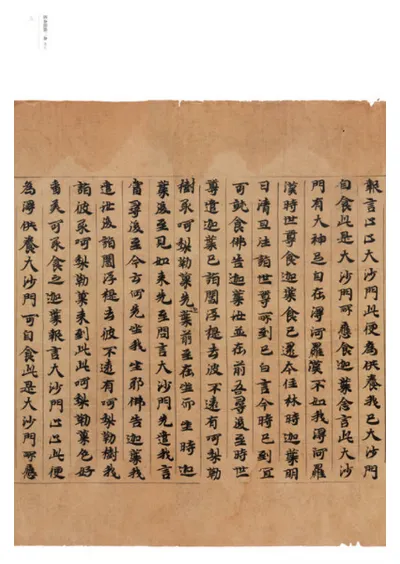 報言止止大沙門此便為供養我已大沙門
自食此是大沙門所應食迦葉念言此大沙
門有大神足自在得阿羅漢不如我得阿羅
漢時世尊食迦葉食已還本住林時迦葉明
日清旦往詣世尊所到已白言今時已到宜
可就食佛告迦葉汝並在前吾尋後至時世
尊遣迦葉已詣閻浮提去彼不遠有呵梨勒
樹取呵梨勒菓先葉前至在坐而坐時迦
葉後至見如來先至問言大沙門先遣我言
當尋後至今云何先坐我坐耶佛告迦葉我
遣汝後詣閻浮提去彼不遠有呵梨勒樹我
詣彼取呵梨勒菓來到此此呵梨勒菓色好
香美可取食之迦葉報言大沙門止止此便
為得供養大沙門可自食此是大沙門所應